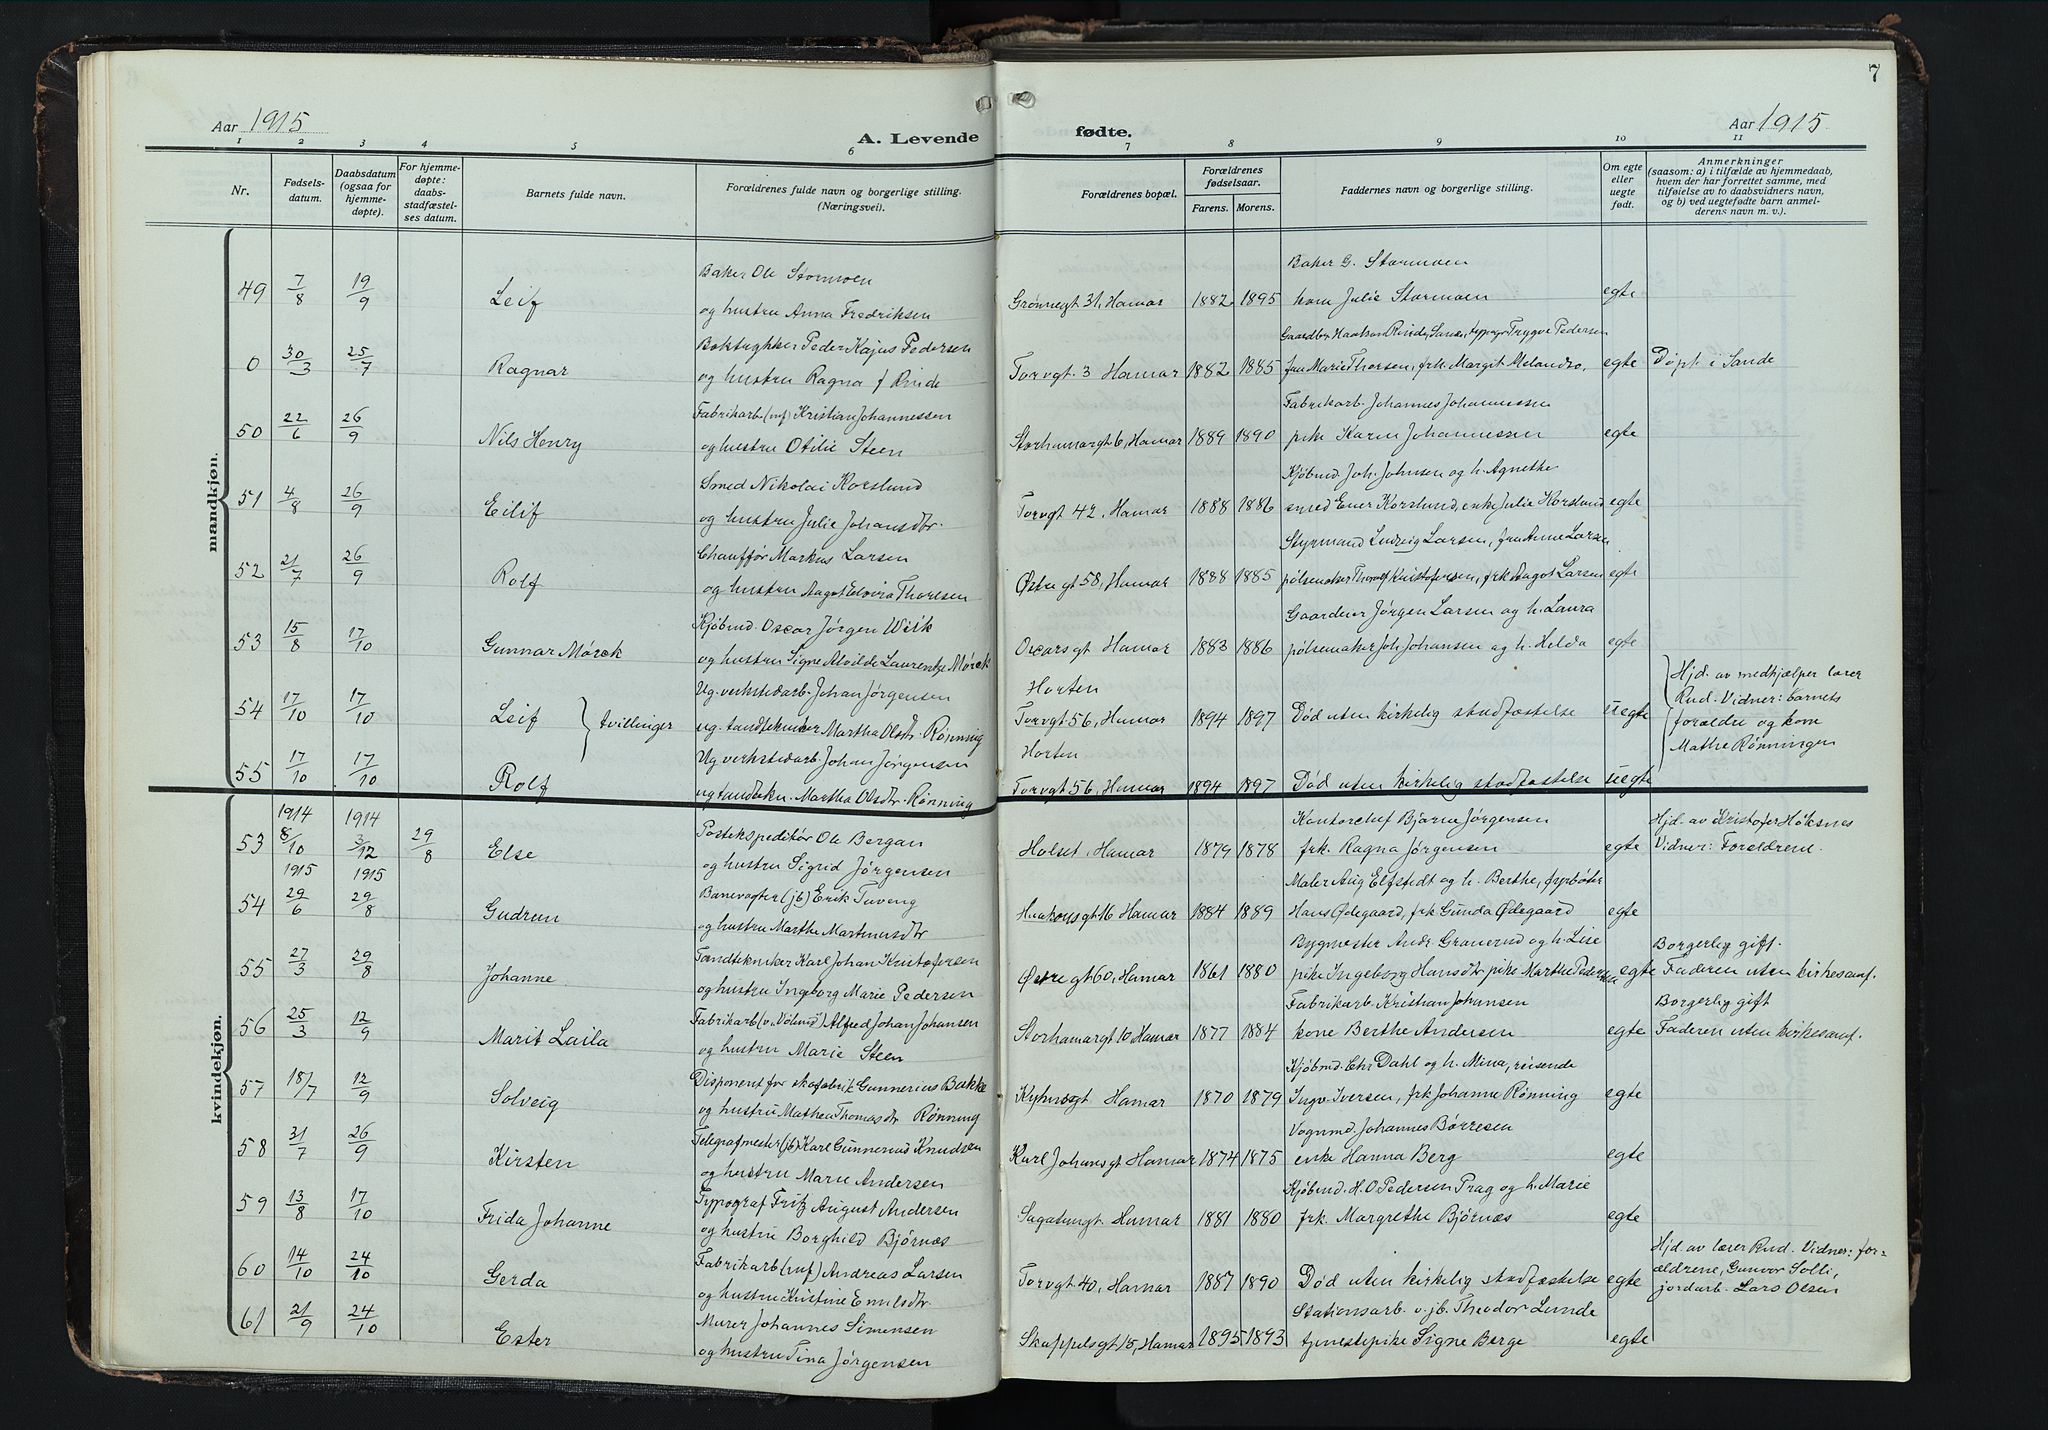 7
Aar 1915
A. Levende fødte.
Aar 1915
1 2 3 4 5 6 7 8 9 10 11
Nr.
Fødsels-
datum.
Daabsdatum
(ogsaa for
hjemme-
døpte).
For hjemme-
døpte:
daabs-
stadfæstel-
ses datum.
Barnets fulde navn.
Forældrenes fulde navn og borgerlige stilling.
(Næringsvei).
Forældrenes bopæl.
Forældrenes
fødselsaar.
Farens. Morens.
Faddernes navn og borgerlige stilling.
Om egte
eller
uegte
født.
Anmerkninger
(saasom: a) i tilfælde av hjemmedaab,
hvem der har forrettet samme, med
tilføielse av to daabsvidners navn,
og b) ved uegtefødte barn anmel-
derens navn m. v.).
mandkjøn.
Baker Ole Stormoen Baker G. Stormoen
49 7/8 19/9 Leif og hustru Anna Fredriksen Grønnegt 31, Hamar 1882 1895 kone Julie Stormoen egte
Boktrykker Peder Kajus Pedersen Gaardbr. Haakon Rinde, Sande, typogr Trygve Pedersen
0 30/3 25/7 Ragnar og hustru Ragna f Rinde Torvgt. 3 Hamar 1882 1885 fru Marie Thorsen, frk. Margit Melandso. egte Døpt i Sande
Fabrikarb. (mf) Kristian Johannessen Fabrikarb. Johannes Johannessen
50 22/6 26/9 Nils Henry og hustru Otilie Steen Storhamargt 6, Hamar 1889 1890 pike Karen Johannessen egte
Smed Nikolai Korslund Kjøbmd. Joh. Johnsen og h. Agnethe
51 4/8 26/9 Eilif og hustru Julie Johansdtr. Torvgt 42, Hamar 1888 1886 smed Einer Korslund, enke Julie Korslund egte
Chauffør Markus Larsen Styrmand Ludvig Larsen, fru Anne Larsen
52 21/7 26/9 Rolf og hustru Aagot Elvira Thoresen Østregt 58, Hamar 1888 1885 pølsemaker Thoralf Kristofersen, frk Aagot Larsen egte
Kjøbmd. Oscar Jørgen Wiik Gaardeier Jørgen Larsen og h. Laura
53 15/8 17/10 Gunnar Mørck og hustru Signe Alvilde Laurentze Mørck Oscarsgt Hamar 1883 1886 pølsemaker Joh. Johansen og h. Helda egte
Ug. verkstedarb. Johan Jørgensen Horten
54 17/10 17/10 Leif } tvillinger ug. tandtekniker Martha Olsdtr. Rønning Torvgt 56, Hamar 1894 1897 Død uten kirkelig stadfæstelse uegte
Hjd. av medhjælper lærer
Rud. Vidner: barnets
forældre og kone
Mathe Rønningen
Ug verkstedarb. Johan Jørgensen Horten
55 17/10 17/10 Rolf ug tandtekn. Martha Olsdtr. Rønning Torvgt 56, Hamar 1894 1897 Død uten kirkelig stadfæstelse uegte
kvindekjøn.
1914 1914 Postekspeditør Ole Bergan Kontorchef Bjarne Jørgensen Hjd. av Kristofer Höksnes
53 8/10 3/12 29/8 Else og hustru Sigrid Jørgensen Holset, Hamar 1879 1878 frk. Ragna Jørgensen egte Vidner: Forældrene.
1915 1915 Banevogter (jb) Erik Tuveng Maler Aug Elfstedt og h. Berthe, fyrbøter
54 29/6 29/8 Gudrun og hustru Marthe Martinusdtr Haakonsgt 16 Hamar 1884 1889 Hans Ødegaard, frk Gunda Ødegaard egte
Tandtekniker Karl Johan Kristofersen Bygmester Andr. Granerud og h. Lise Borgerlig gift.
55 27/3 29/8 Johanne og hustru Ingeborg Marie Pedersen Østregt 60, Hamar 1861 1880 pike Ingeborg Hansdtr pike Marthe Pedersen egte Faderen uten kirkesamf.
Fabrikarb (v. "Vølund") Alfred Johan Johansen Fabrikarb. Kristian Johansen Borgerlig gift
56 25/3 12/9 Marit Laila og hustru Marie Steen Storhamargt 10 Hamar 1877 1884 kone Berthe Andersen egte Faderen uten kirkesamf.
Disponent for skofabrik Gunnerius Bakke Kjøbmd. Chr Dahl og h. Mina, reisende
57 18/7 12/9 Solveig og hustru Mathea Thomasdtr Rønning Kyhnsgt Hamar 1870 1879 Ingv. Iversen, frk Johanne Rønning egte
Telegrafmester (jb) Karl Gunnerius Knudsen Vognmd. Johannes Børresen
58 31/7 26/9 Kirsten og hustru Marie Andersen Karl Johansgt Hamar 1874 1875 enke Hanna Berg egte
Typograf Fritz August Andersen Kjøbmd. H. O. Pedersen Prag og h. Marie
59 13/8 17/10 Frida Johanne og hustru Borghild Bjørnæs Sagatungt. Hamar 1881 1880 frk. Margrethe Bjørnæs egte
Fabrikarb (mf) Andreas Larsen
60 14/10 24/10 Gerda og hustru Kristine Emilsdtr Torvgt 40, Hamar 1887 1890 Død uten kirkelig stadfæstelse egte
Hjd. av lærer Rud. Vidner: for-
ældrene, Gunvor Solli,
jordarb. Lars Olsen
Murer Johannes Simensen Stationsarb. v. jb. Theodor Lunde
61 21/9 24/10 Ester og hustru Tina Jørgensen Skappelsgt 15, Hamar 1895 1893 tjenestepike Signe Berge egte